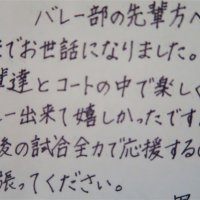 バレー部の先輩方へ
でお世話になりました。
達とコートの中で楽しく
ー出来て嬉しかったです
後の試合全力で応援する
張ってください。